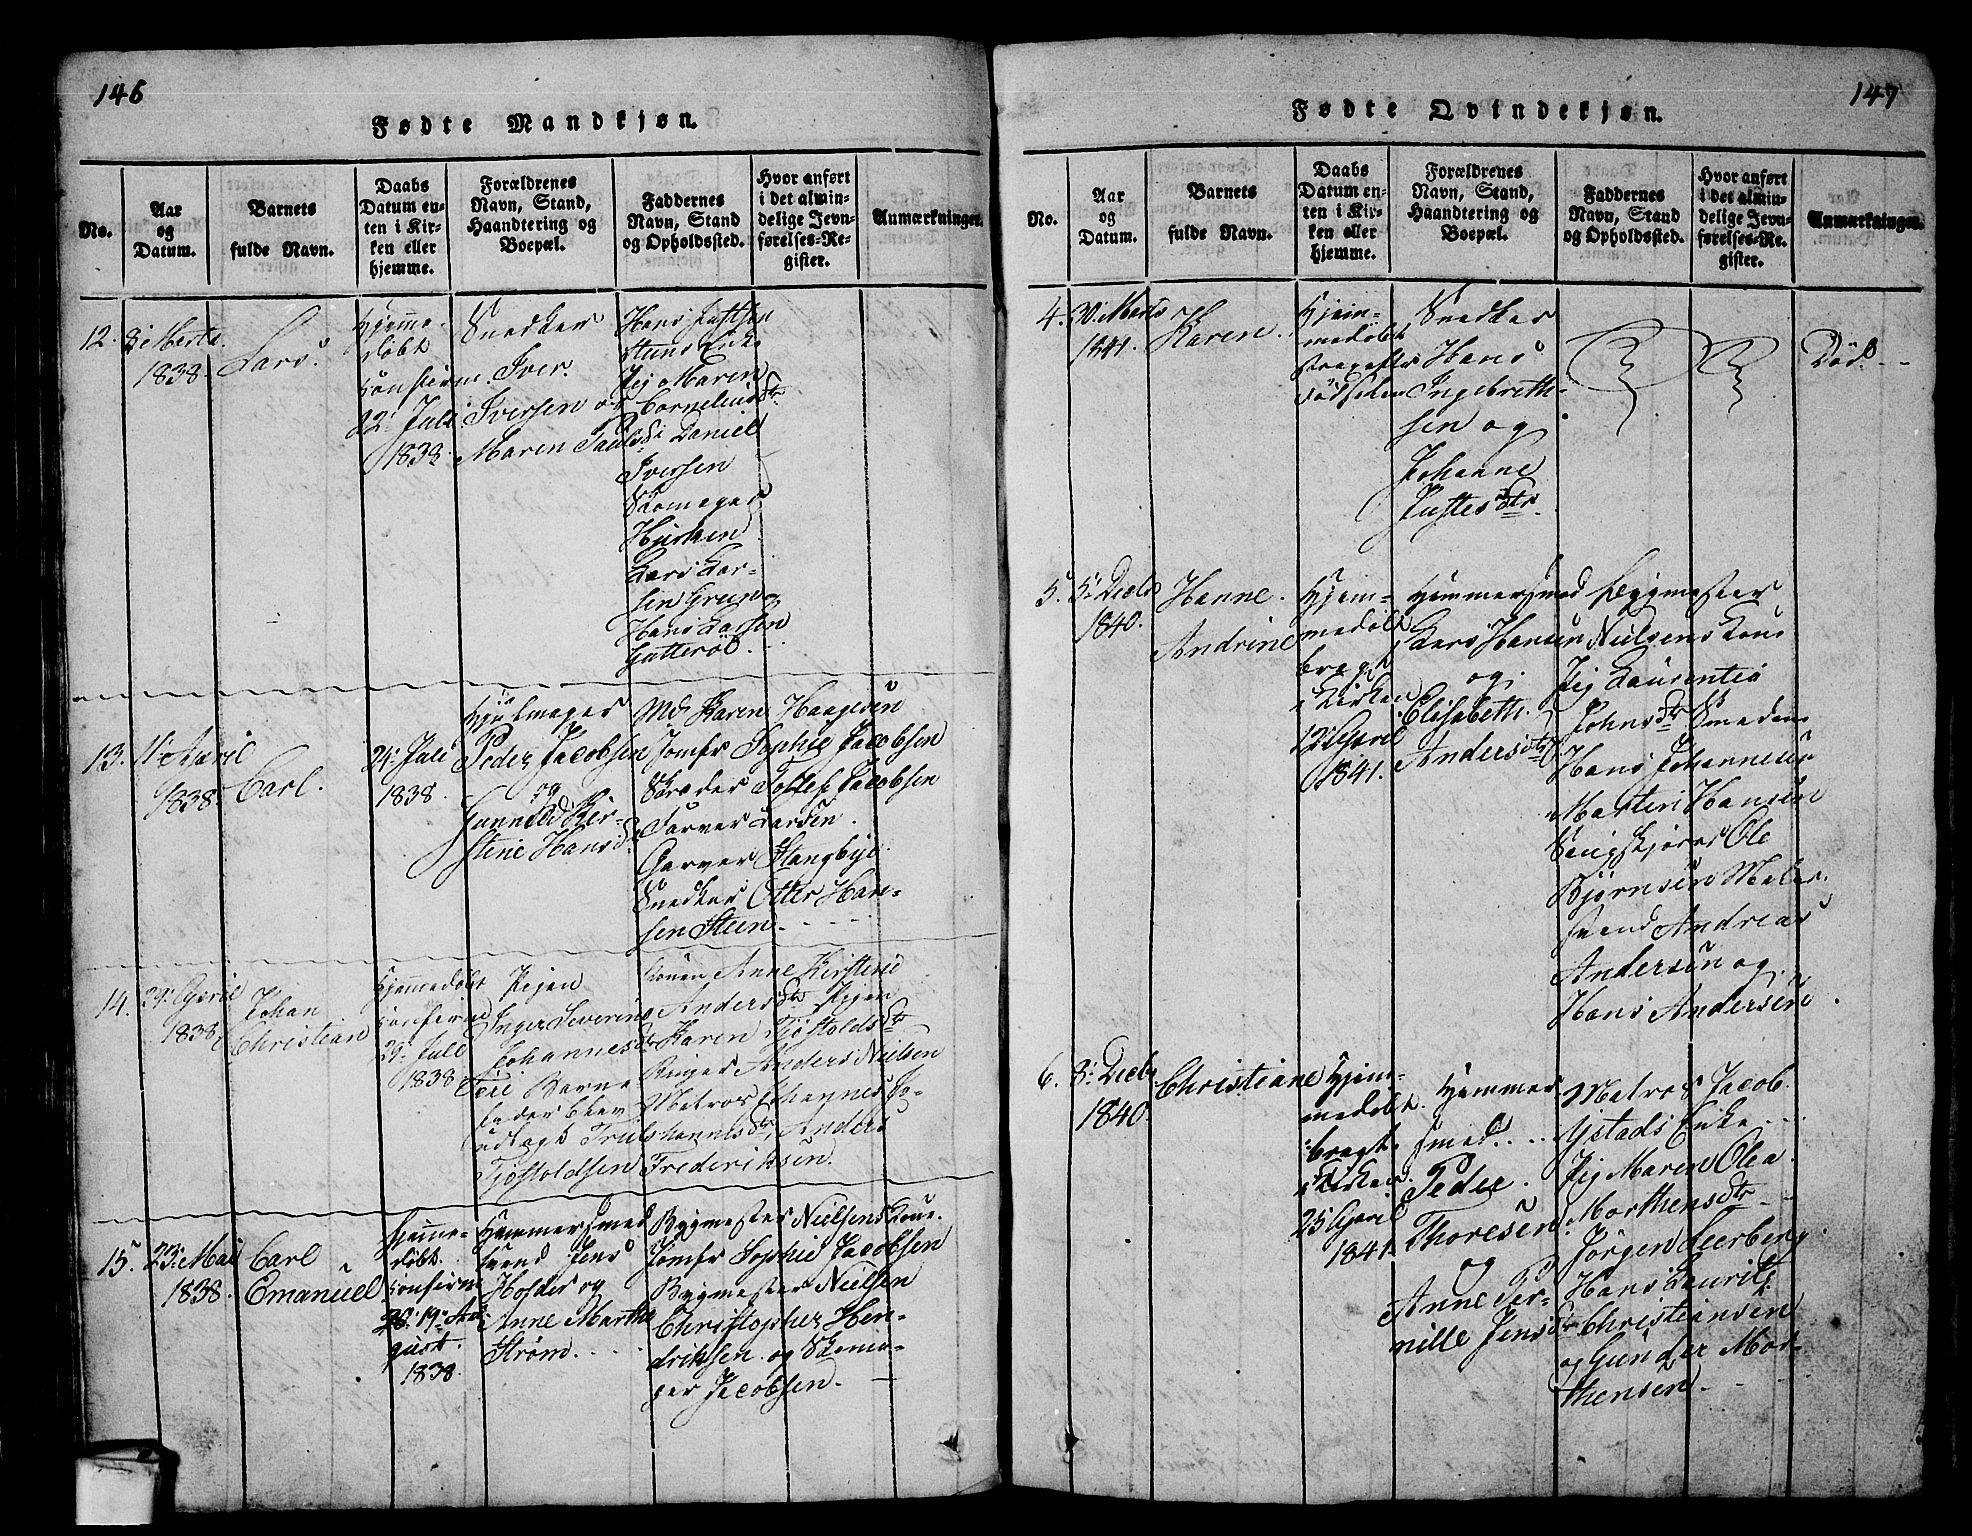 146
Fødte Mandkjøn.
No.
Aar
og
Datum.
Barnets
fulde Navn.
Daabs
Datum en-
ten i Kir-
ken eller
hjemme.
Forældrenes
Navn, Stand,
Haandtering og
Boepæl.
Faddernes
Navn, Stand
og Opholdssted.
Hvor anført
i det almin-
delige Jevn-
førelses-Re-
gister.
Anmærkninger.
12.
8de Marts
1838.
Lars.
Hjemme-
døbt
Confirm.
22de Juli
1838
Snedker
Iver
Iversen og
Maren Pauls-
Hans Justsen
Enke
Pig Maren
Cornelius Dtr
Daniel
Iversen
Skomager
Lars Lar-
sen
Hans Larsen
13.
11 April
1838
Carl.
24de Juli
1838
Hjulmager
Peder Jacobsen
og
Gunnild Kir-
stine Hansd.
Md Karen Haagesen
Jomfr Sophie Jacobsen
Skræder Tollef Jacobsen
Farver Larsen.
Garver Stangbye.
Snedker Otter Han-
sen Steen.
14.
24de April
1838
Johan
Christian
Hjemmedøbt
Confirm
29de Juli
1838
Pigen
Inger Severine
Johannesdtr
Til Barne
fader blev
udlagt Truls
Tjøstoldsen
Konen Anne Kirstine
Andersdtr Pigen
Karen Tjøstoldsdtr
Anders Nielsen
Matros Johannes Jo-
hannesen, Anders
Frederiksen.
15.
23de Mai
1838.
Carl
Emanuel
Hjemme-
døbt.
Confirm
19de Au-
gust.
1838.
Hammersmed
svend Jens
Holder og
Anne Marthe
Strøm.
Bygmester Nielsens Kone.
Jomfr Sophie Jacobsen
Bygmester Nielsen
Christopher Hen-
driksen og Skoma-
ger Jacobsen.
147
Fødte Qvindekjøn.
No.
Aar
og
Datum.
Barnets
fulde Navn.
Daabs
Datum en-
ten i Kir-
ken eller
hjemme.
Forældrenes
Navn, Stand,
Haandtering og
Boepæl.
Faddernes
Navn, Stand
og Opholdssted.
Hvor anført
i det almin-
delige Jevn-
førelses-Re-
gister.
Anmærkninger.
4.
Marts
1841.
Karen.
Hjem-
medøbt
strax efter
Fødselen
Snedker
Hans
Ingebreth-
sen og
Johanne
Justesdtr
Død.
5.
5de Decbr
1840.
Hanne
Andrine
Hjem-
medøbt
bragt
i Kirken
12te April
1841.
Hammersmed
Lars Hansen
og
Elisabeth
Andersdtr
Bygmester
Nielsens Kone
Pig Laurentia
Johnsdtr Smeden
Hans Johannesen
Martin Hansen
Ole
Bjørnsen Maler-
svend Andreas
Andersen og
Hans Andersen
6.
8de Decbr
1840.
Christiane
Hjem-
medøbt.
bragt
i Kirken
25de April
1841.
Hammer
smed
Peder
Thoresen
og
Anne Per-
nille Jensdtr
Matros Jacob
Ystads Enke
Pig Maren Olea
Morthensdtr
Jørgen Leerberg
Hans Lauritz
Christiansen
og Gunder Mor-
thensen.